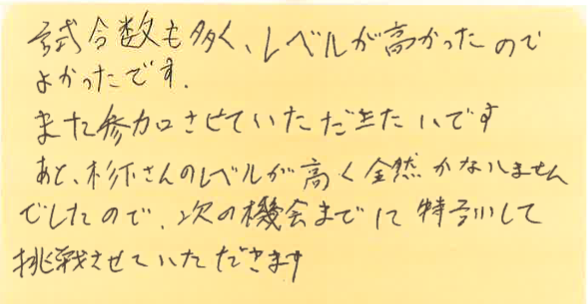 試合数も多く、レベルが高かったので
よかったです.
また参加させていただきたいです
あと、杉下さんのレベルが高く全然かないません
でしたので、次の機会までに特訓して
挑戦させていただきます